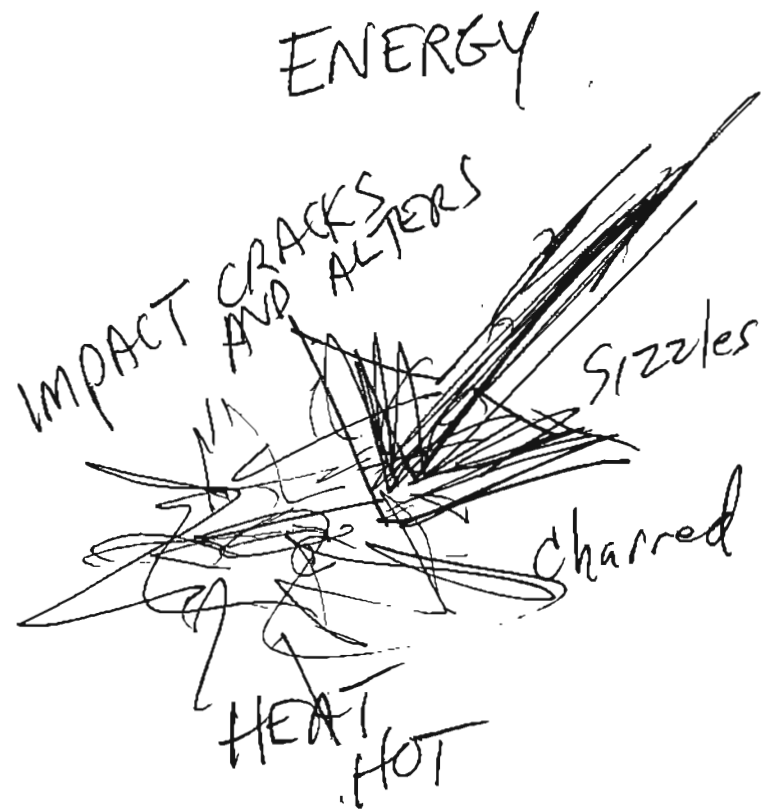 ENERGY
IMPACT CRACKS
AND ALTERS
Sizzles
Charred
HEAT
HOT